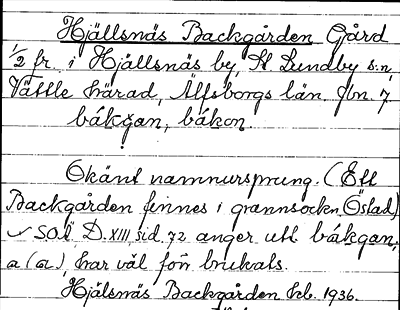 Hjällsnäs Backgården Gård
1/2 fr. i Hjällsnäs by, St Lundby s:n,
Vättle härad, Älfsborgs län. Jbn. 7.
bákgan, bákon.
Okänt namnursprung. (Ett
Backgården finnes i grannsockn. Östad)
SOÄ D. XIII sid. 72 anger utt. bákgan,
a (a), har väl förr brukats.
Hjälsnäs Backgården Ekb. 1936.